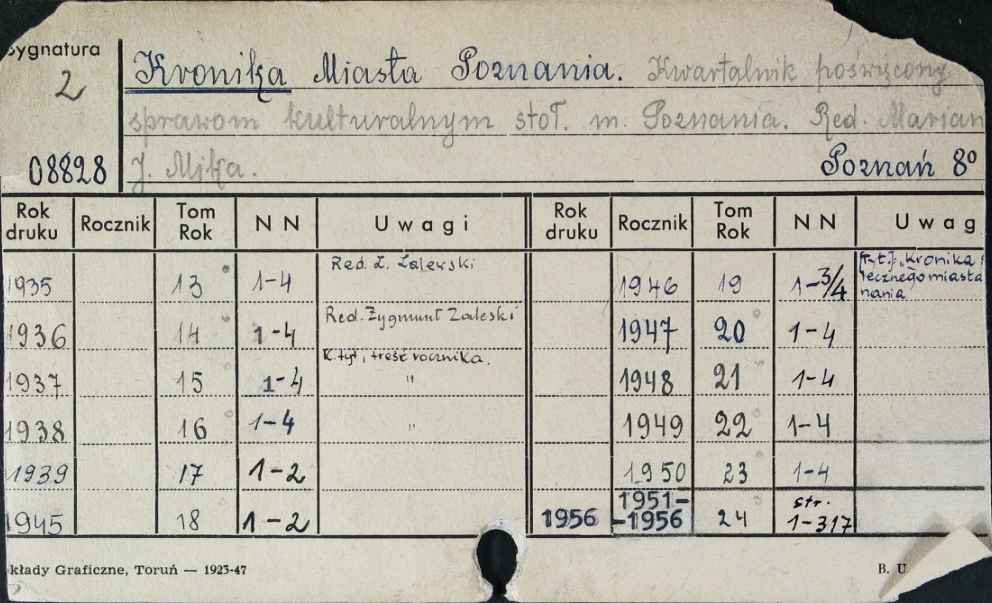 Sygnatura
2
08828
Kronika Miasta Poznania. Kwartalnik poświęcony
sprawom kulturalnym stoł. m. Poznania. Red. Marian
J. Mika.
Poznań 8°
Rok druku Rocznik Tom Rok N N Uwagi Rok druku Rocznik Tom Rok N N Uwag
1935 13 1-4 Red. Z. Zaleski 1946 19 1-3/4 K.t.j. "Kronika
łecznego miasta
nania
1936 14 1-4 Red. Zygmunt Zaleski 1947 20 1-4
1937 15 1-4 K. tyt., treść rocznika. " 1948 21 1-4
1938 16 1-4 " 1949 22 1-4
1939 17 1-2 1950 23 1-4
1945 18 1-2 1956 1951-
-1956 24 str.
1-317
kłady Graficzne, Toruń — 1923-47
B. U